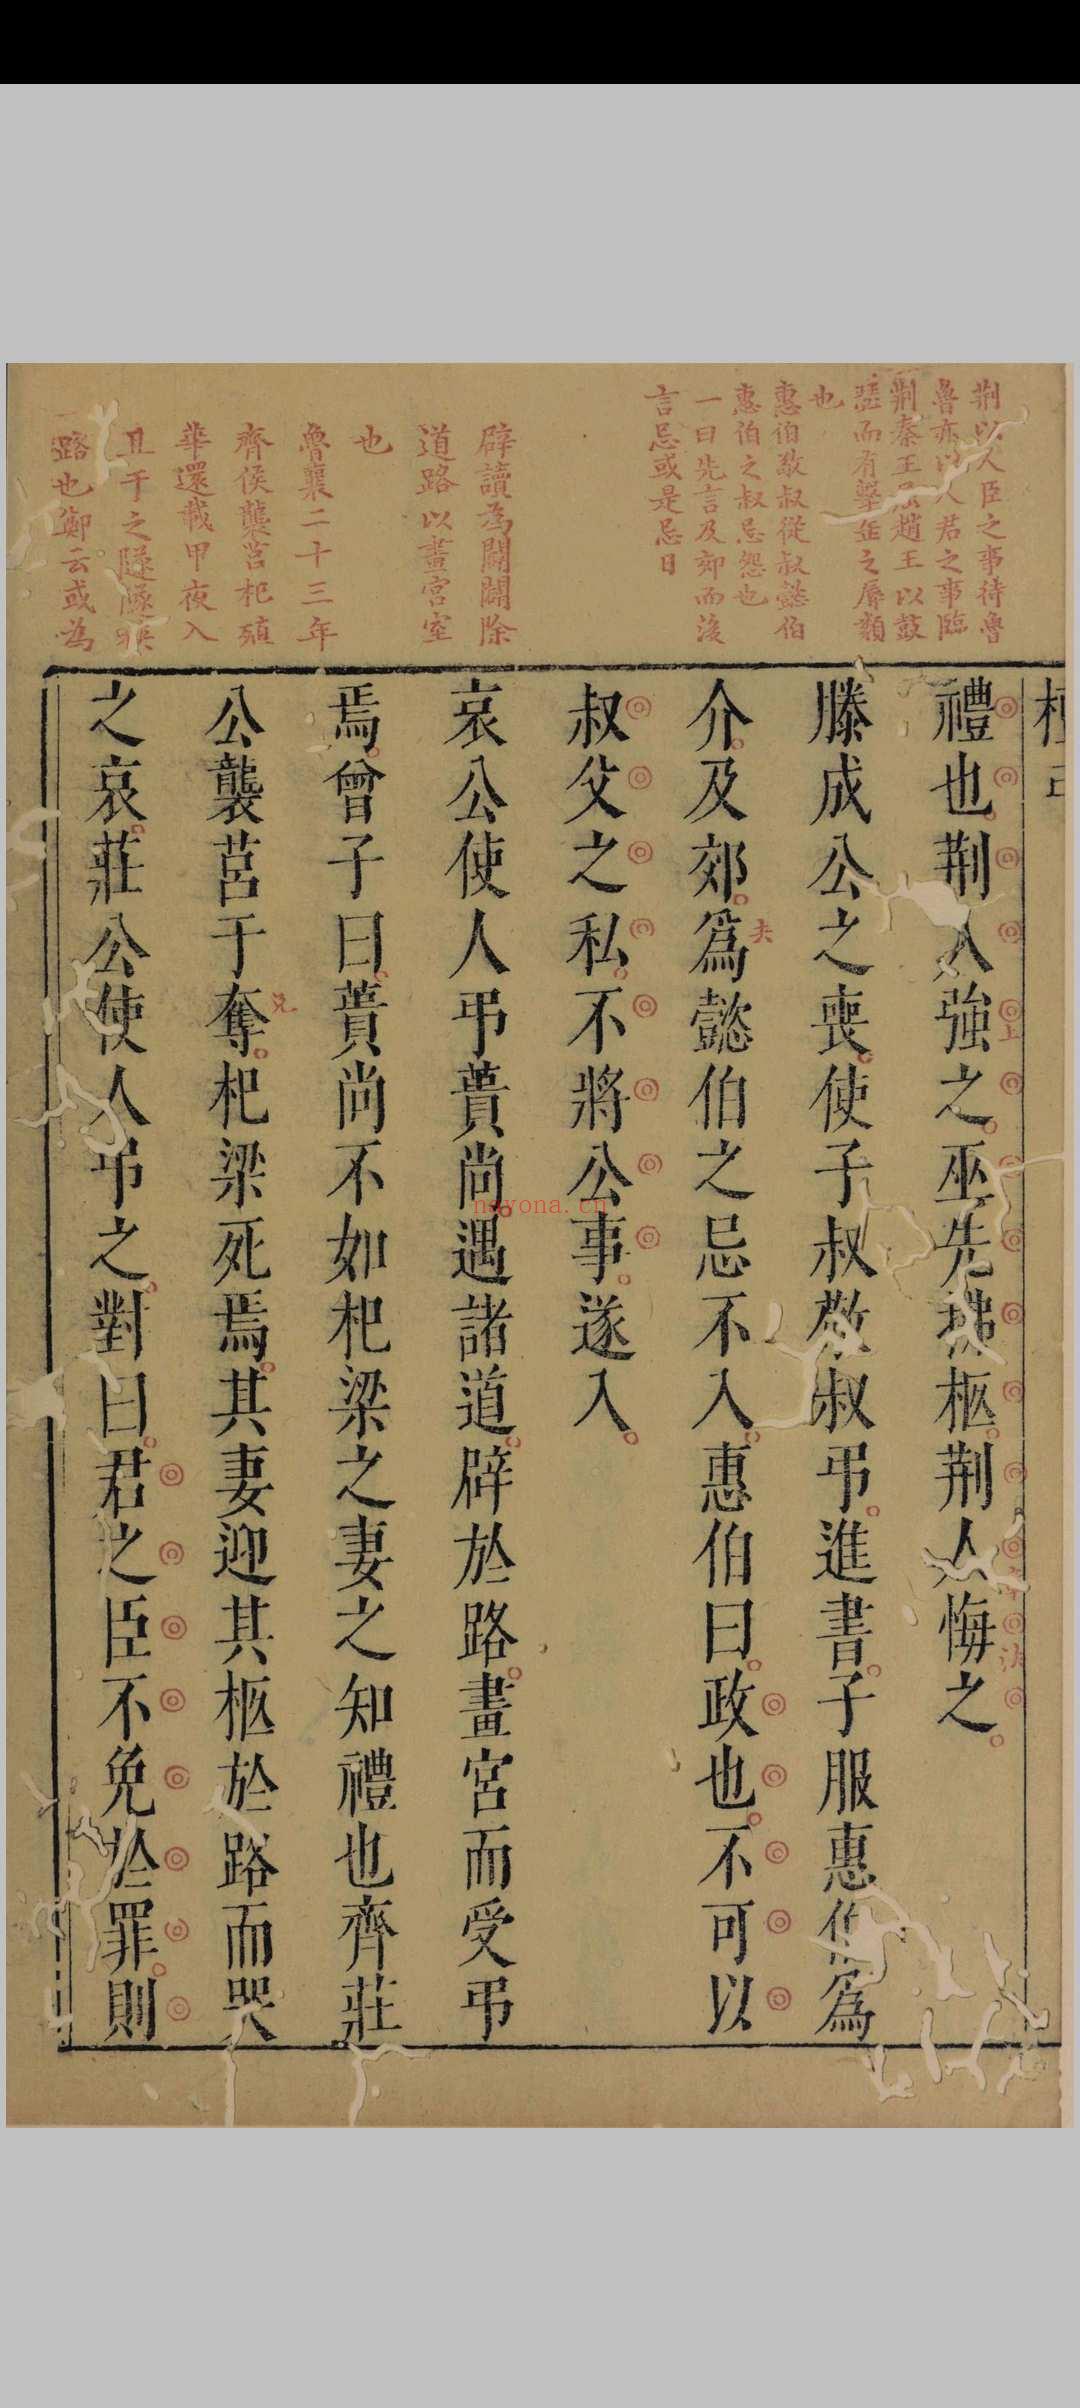 荆以人臣之事待魯
魯亦以人君之事臨
荆秦王屈趙王以鼓
瑟而有擊缶之辱類
也
惠伯敬叔從叔懿伯
惠伯之叔忌怨也
一曰先言及郊而後
言忌或是忌日
辟讀為闢闢除
道路以畫宮室
也
魯襄二十三年
齊侯襲莒杞殖
華還載甲夜入
且于之隧隧狹
路也鄭云或為
禮也荆人強之巫先拂柩荆人悔之
上
滕成公之喪使子叔敬叔弔進書子服惠伯為
介及郊為懿伯之忌不入惠伯曰政也不可以
夫
叔父之私不將公事遂入
哀公使人弔蕢尚遇諸道辟於路畫宮而受弔
焉曾子曰蕢尚不如杞梁之妻之知禮也齊莊
公襲莒于奪杞梁死焉其妻迎其柩於路而哭
兌
之哀莊公使人弔之對曰君之臣不免於罪則
nayona.cn